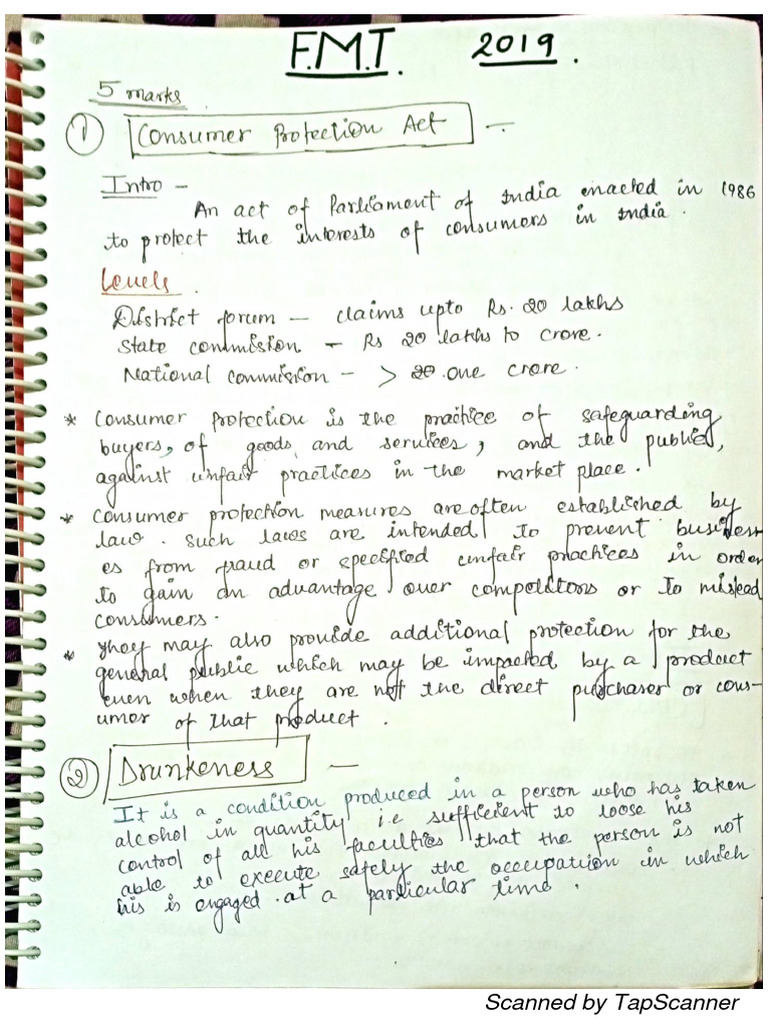 F.M.T. 2019.
5 marks
① Consumer Protection Act —
Intro —
An act of Parliament of India enacted in 1986
to protect the interests of consumers in India.
Levels.
District forum — claims upto Rs. 20 lakhs
State commission — Rs 20 lakhs to crore.
National commission — > 20 one crore.
* Consumer Protection is the practice of safeguarding
buyers, of goods and services, and the public,
against unfair practices in the market place.
* Consumer protection measures are often established by
law. Such laws are intended to prevent business
es from fraud or specified unfair practices in order
to gain an advantage over competitors or to mislead
consumers.
* They may also provide additional protection for the
general public which may be impacted by a product
even when they are not the direct purchaser or cons-
umer of that product.
② Drunkeness —
It is a condition produced in a person who has taken
alcohol in quantity i.e sufficient to loose his
control of all his faculties that the person is not
able to execute safely the occupation in which
his is engaged at a particular time.
Scanned by TapScanner